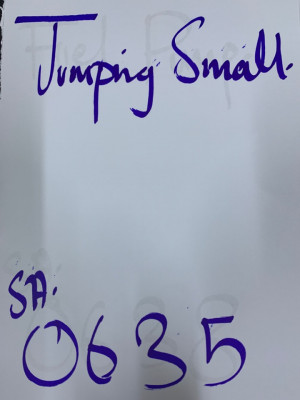 Jumping Small.
SA.
0635